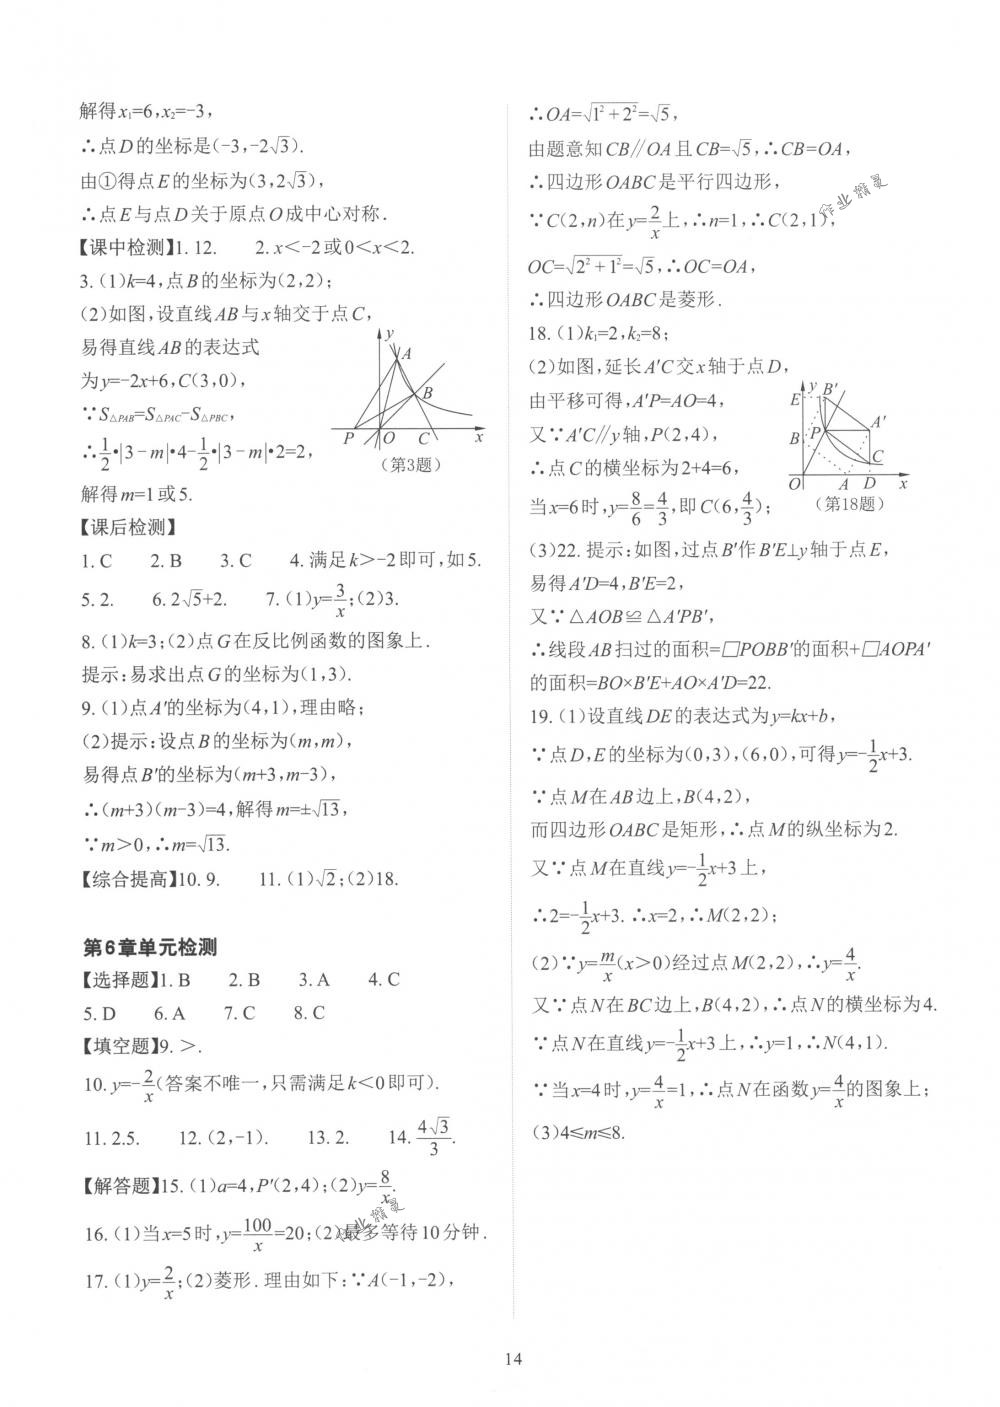 解得x₁=6,x₂=-3,
∴点D的坐标是(-3,-2√3).
由①得点E的坐标为(3,2√3),
∴点E与点D关于原点O成中心对称.
【课中检测】1. 12. 2. x<-2或0<x<2.
3. (1)k=4,点B的坐标为(2,2);
(2)如图,设直线AB与x轴交于点C,
易得直线AB的表达式
为y=-2x+6,C(3,0),
∵S△PAB=S△PAC-S△PBC,
∴1/2•|3-m|•4-1/2•|3-m|•2=2,
解得m=1或5.
y
A
B
P O C x
(第3题)
【课后检测】
1. C 2. B 3. C 4. 满足k>-2即可,如5.
5. 2. 6. 2√5+2. 7. (1)y=3/x;(2)3.
8. (1)k=3;(2)点G在反比例函数的图象上.
提示:易求出点G的坐标为(1,3).
9. (1)点A′的坐标为(4,1),理由略;
(2)提示:设点B的坐标为(m,m),
易得点B′的坐标为(m+3,m-3),
∴(m+3)(m-3)=4,解得m=±√13,
∵m>0,∴m=√13.
【综合提高】10. 9. 11. (1)√2;(2)18.
第6章单元检测
【选择题】1. B 2. B 3. A 4. C
5. D 6. A 7. C 8. C
【填空题】9. >.
10. y=-2/x(答案不唯一,只需满足k<0即可).
11. 2.5. 12. (2,-1). 13. 2. 14. 4√3/3.
【解答题】15. (1)a=4,P′(2,4);(2)y=8/x.
16. (1)当x=5时,y=100/x=20;(2)最多等待10分钟.
17. (1)y=2/x;(2)菱形.理由如下:∵A(-1,-2),
作业精灵
∴OA=√(1²+2²)=√5,
由题意知CB∥OA且CB=√5,∴CB=OA,
∴四边形OABC是平行四边形,
∵C(2,n)在y=2/x上,∴n=1,∴C(2,1),
作业精灵
OC=√(2²+1²)=√5,∴OC=OA,
∴四边形OABC是菱形.
18. (1)k₁=2,k₂=8;
(2)如图,延长A′C交x轴于点D,
由平移可得,A′P=AO=4,
又∵A′C∥y轴,P(2,4),
∴点C的横坐标为2+4=6,
当x=6时,y=8/6=4/3,即C(6,4/3);
y B′
E
P A′
B
C
O A D x
(第18题)
(3)22. 提示:如图,过点B′作B′E⊥y轴于点E,
易得A′D=4,B′E=2,
又∵△AOB≌△A′PB′,
∴线段AB扫过的面积=□POBB′的面积+□AOPA′
的面积=BO×B′E+AO×A′D=22.
19. (1)设直线DE的表达式为y=kx+b,
∵点D,E的坐标为(0,3),(6,0),可得y=-1/2x+3.
∵点M在AB边上,B(4,2),
而四边形OABC是矩形,∴点M的纵坐标为2.
又∵点M在直线y=-1/2x+3上,
∴2=-1/2x+3. ∴x=2,∴M(2,2);
(2)∵y=m/x(x>0)经过点M(2,2),∴y=4/x.
又∵点N在BC边上,B(4,2),∴点N的横坐标为4.
∵点N在直线y=-1/2x+3上,∴y=1,∴N(4,1).
∵当x=4时,y=4/x=1,∴点N在函数y=4/x的图象上;
(3)4≤m≤8.
14